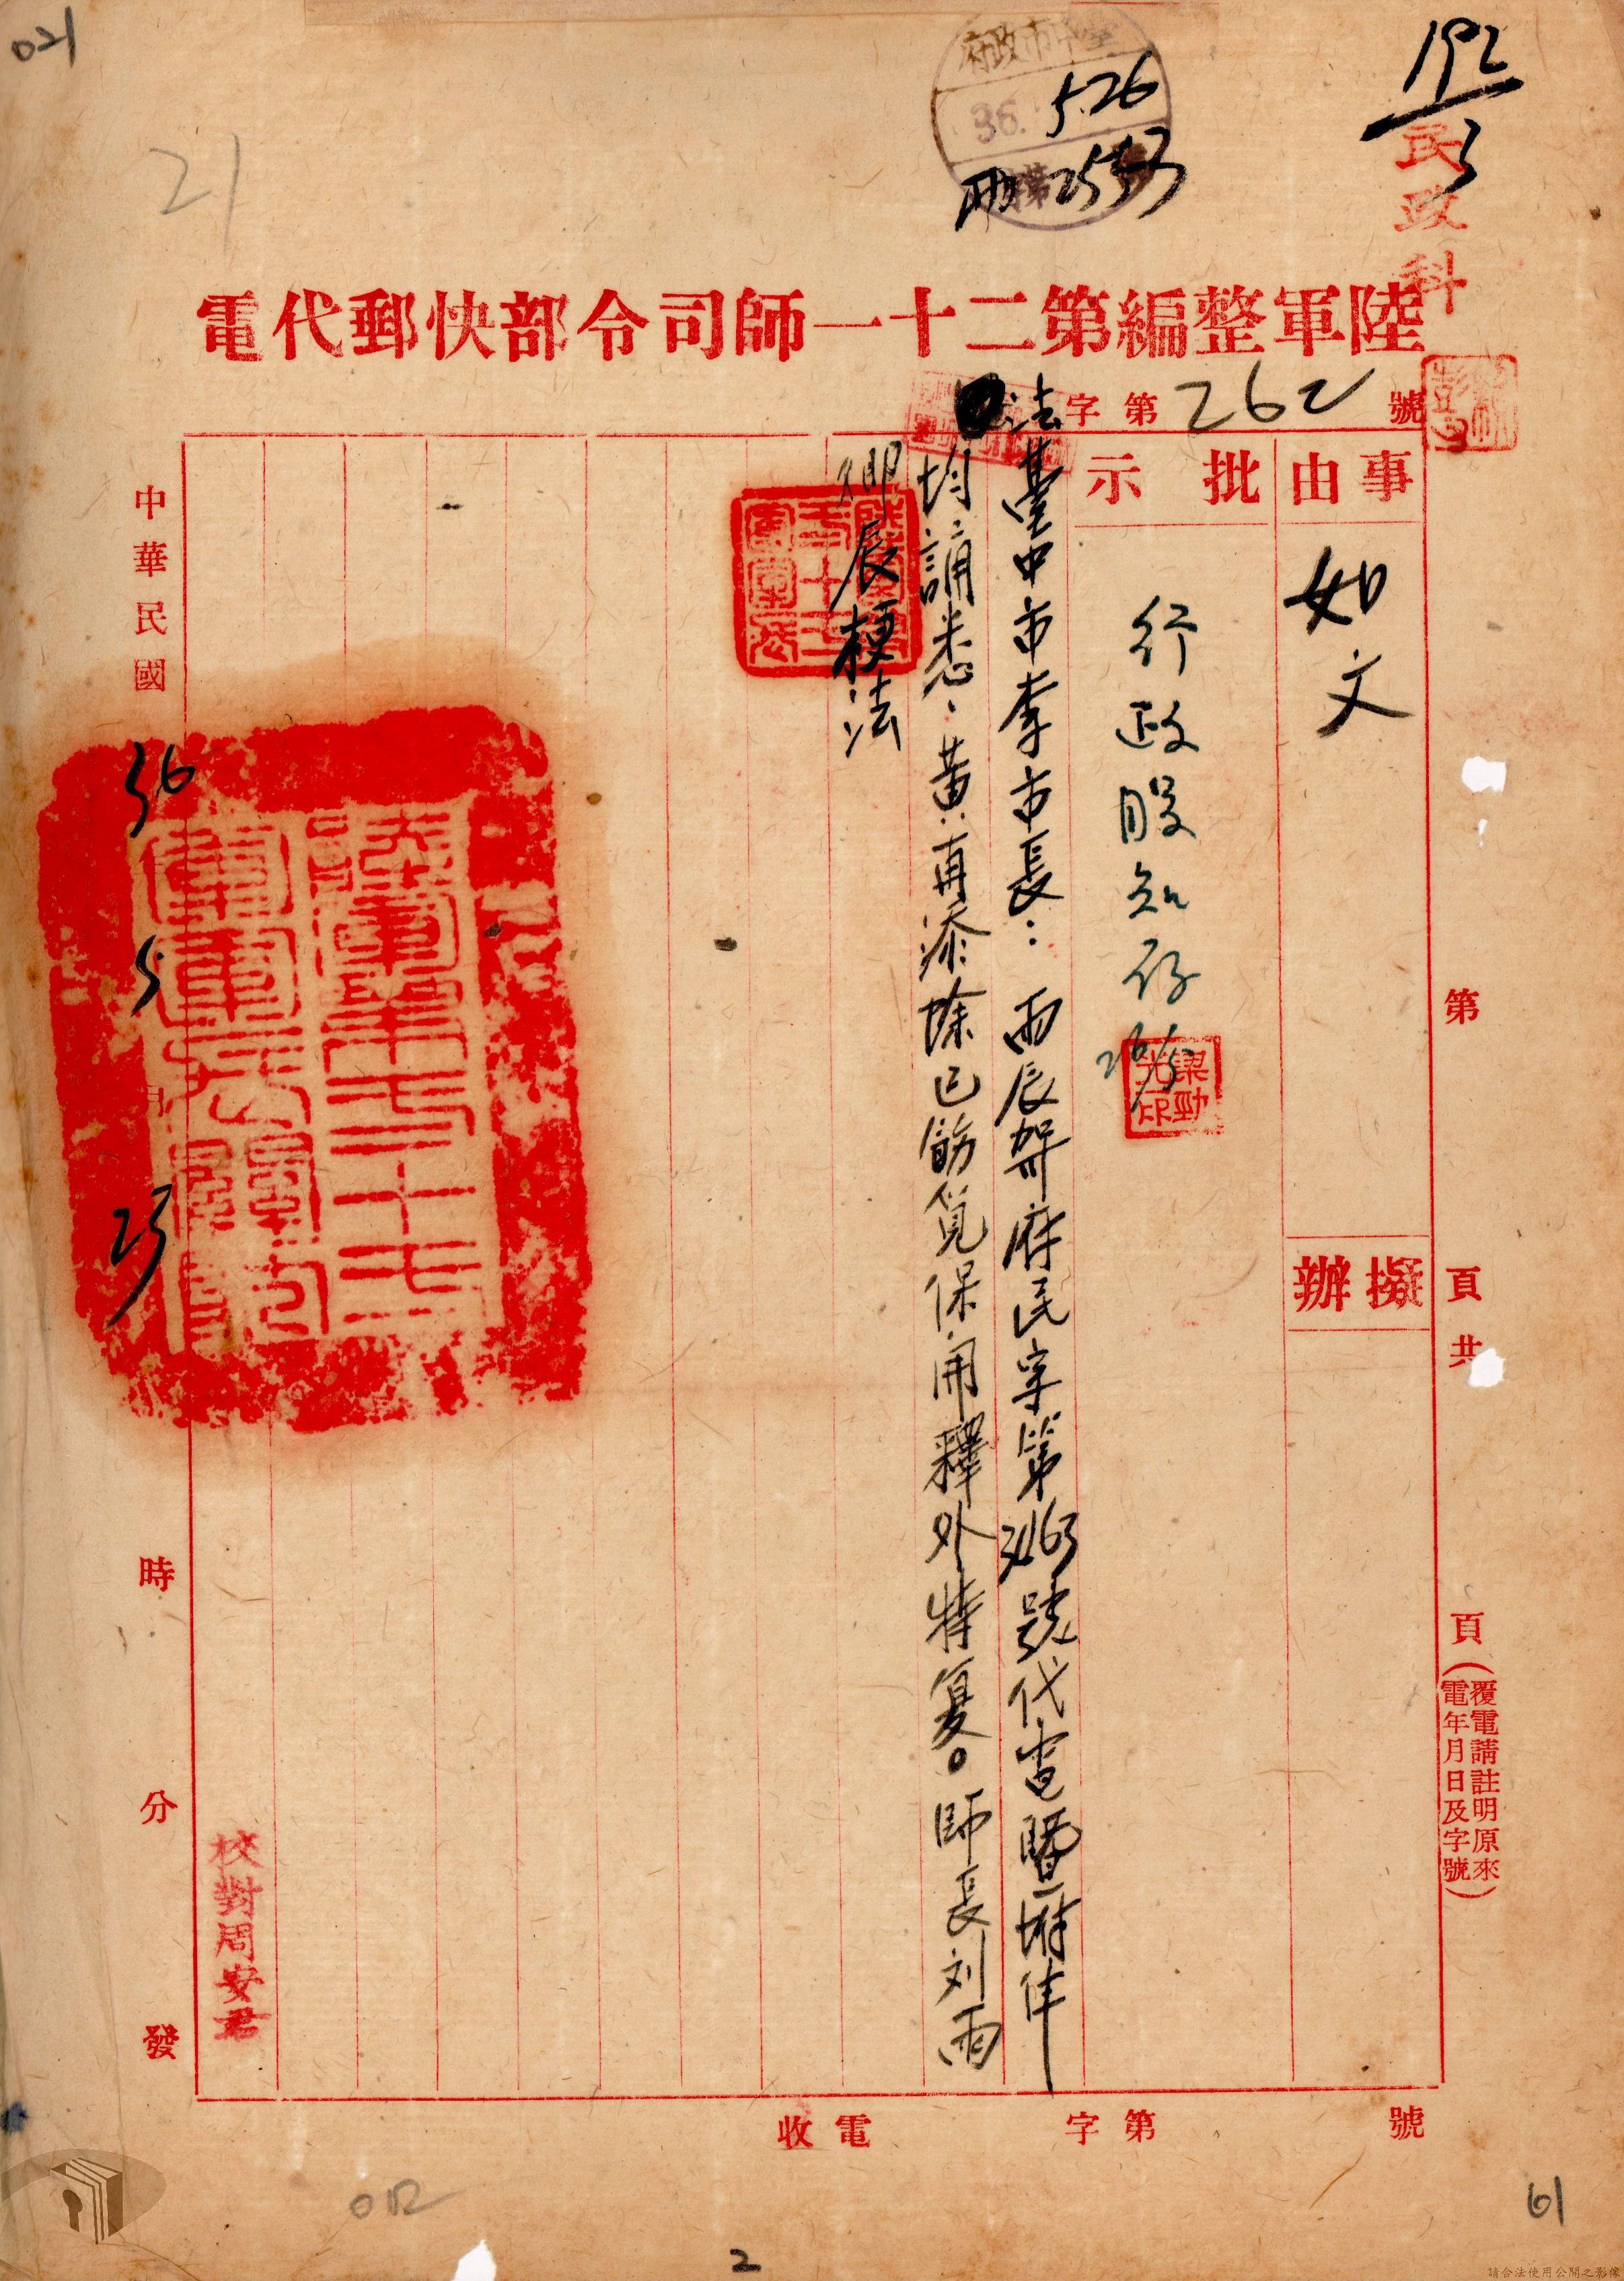 021
21
臺中市政府
36. 5.26
192
3
民政科
陸軍整編第二十一師司令部快郵代電
法字第262號
事由
如文
擬辦
批示
行政股知存
26/5
梁勁光印
臺中市李市長：兩辰
府民字第3463號代電暨附件
均誦悉、黃再添除已飭覓保開釋外特复。師長刘雨
卿辰梗法
中華民國36 5月25
時
分
發
校對周安君
第
頁共
頁(覆電請註明原來
電年月日及字號)
號
第
字
電
收
61
2
請合法使用公開之影像